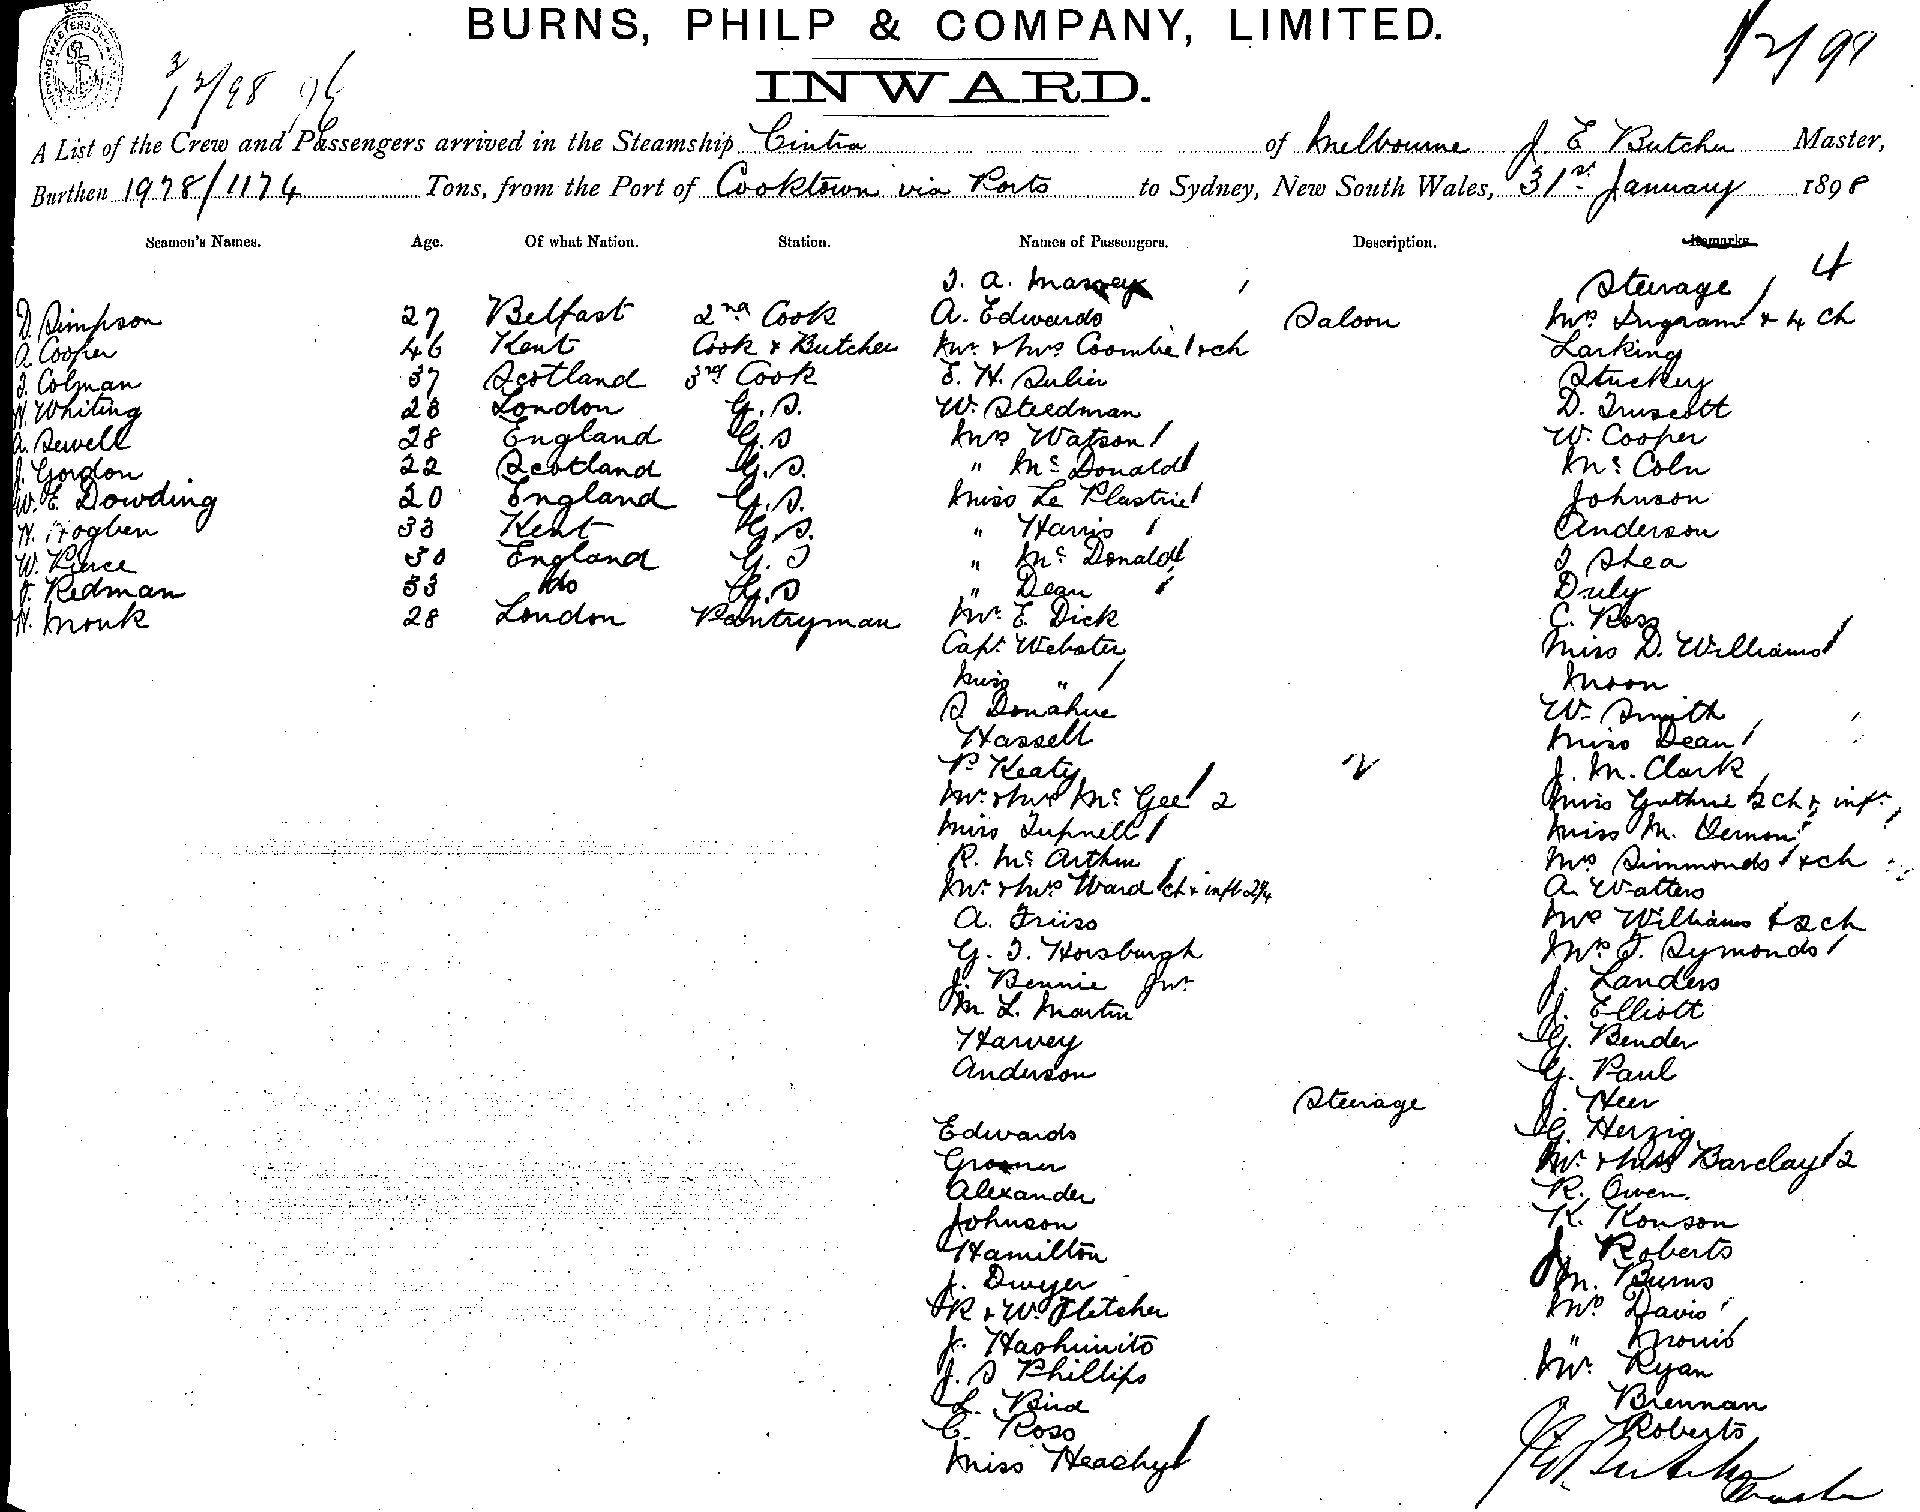 BURNS, PHILP & COMPANY, LIMITED.
1/2/98
INWARD.
A List of the Crew and Passengers arrived in the Steamship Cintra of Melbourne J. E Butcher Master,
Burthen 1978/1174 Tons, from the Port of Cooktown via Ports to Sydney, New South Wales, 31st January 1898
Seamen's Names. Age. Of what Nation. Station. Names of Passengers. Description. Remarks
D. Simpson 27 Belfast 2nd Cook
A Cooper 46 Kent Cook & Butcher
J. Colman 37 Scotland 3rd Cook
H. Whiting 23 London G. S.
A. Sewell 28 England G. S
J. Gordon 22 Scotland G. S.
W. E. Dowding 20 England G. S.
H. Hogben 33 Kent G. S.
W. Pierce 30 England G. S
J. Redman 33 do G. S
H. Monk 28 London Pantryman
J. A. Massey
A. Edwards Saloon
Mr & Mrs Coombe 1 ch
E. H. Sulier
W. Steedman
Mrs Watson
" Mc Donald
Miss Le Plastrier
" Harris
" Mc Donald
" Dean
Mr. E. Dick
Capt. Webster
Miss "
S. Donahue
Hassell
P Keaty
Mr. & Mrs Mc Gee 2
Miss Tupnell
R. Mc Arthur
Mr. & Mrs Ward ch & inft
A. Friiso
G. J. Horsburgh
J. Bennie Jnr
M L. Martin
Harvey
Anderson
Steerage
Edwards
Alexander
Johnson
Hamilton
J. Dwyer
R & W. Fletcher
J. Hashimito
J. S Phillips
L. Bird
C. Ross
Miss Heachy
Steerage 4
Mrs Ingram & 4 ch
Larking
Stuckey
D. Truscott
W. Cooper
Mc Coln
Johnson
Anderson
J Shea
Duly
C. Ross
Miss D. Williams
Moon
W. Smith
Miss Dean
J. M. Clark
Miss Guthrie 2 ch & inft
Miss M. Vernon
Mrs Simmonds & ch
A. Watters
Mrs Williams & 2 ch
Mrs J. Symonds
J. Landers
J. Elliott
G. Bender
G. Paul
J. Heer
G. Herzig
Mr. & Mrs Barclay 2
R. Owen.
K. Konson
J. Roberts
M. Burns
Mrs Davis
" Morris
Mr. Ryan
Brennan
Roberts
J E Butcher
Master